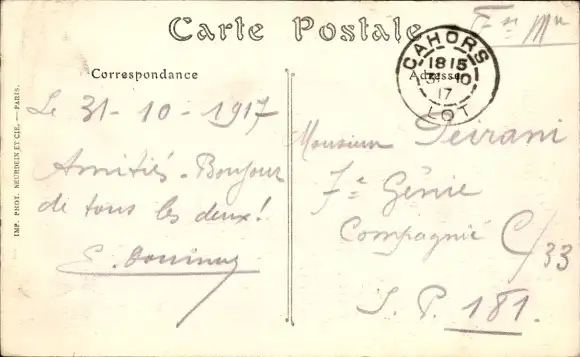 Carte Postale
Fse Mre
Correspondance
Adresse
CAHORS
18 15
31 - 10
17
LOT
Le 31 - 10 - 1917
Amitiés - Bonjour
de tous les deux!
E.
Monsieur Peirani
7e Génie
Compagnie C/33
S. P. 181.
IMP. PHOT. NEURDEIN ET CIE. — PARIS.